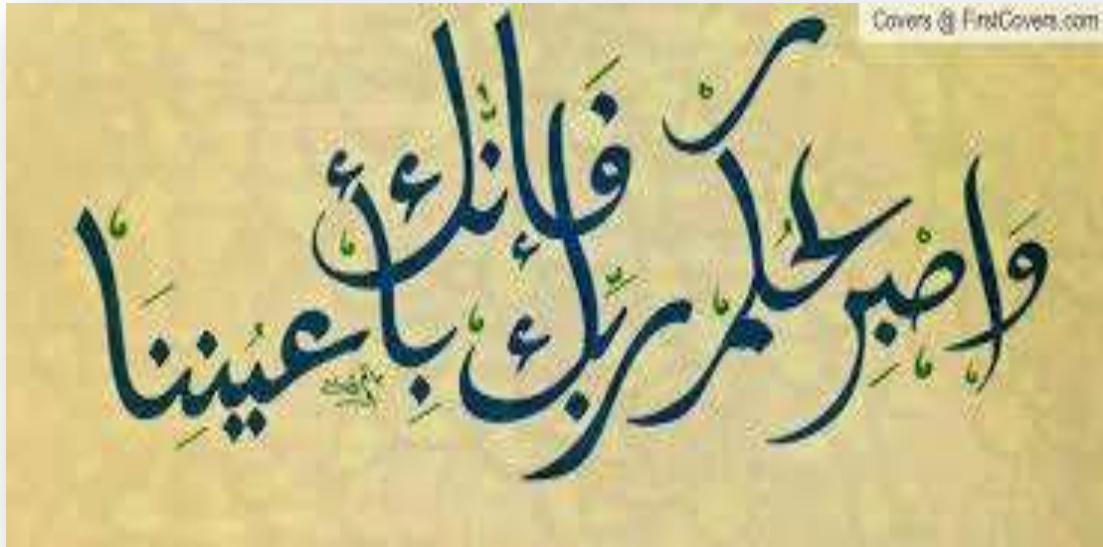 Covers @ FirstCovers.com
وَاصْبِرْ لِحُكْمِ رَبِّكَ فَإِنَّكَ بِأَعْيُنِنَا